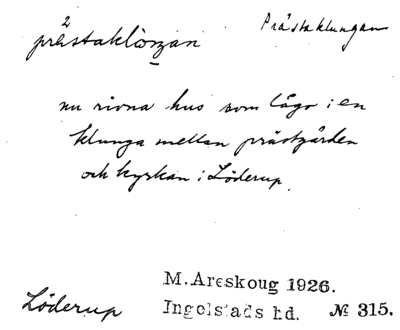 prästaklöŋan Prästaklungan
nu rivna hus som lågo i en
klunga mellan prästgården
och kyrkan i Löderup.
M. Areskoug 1926.
Löderup Ingelstads hd. № 315.